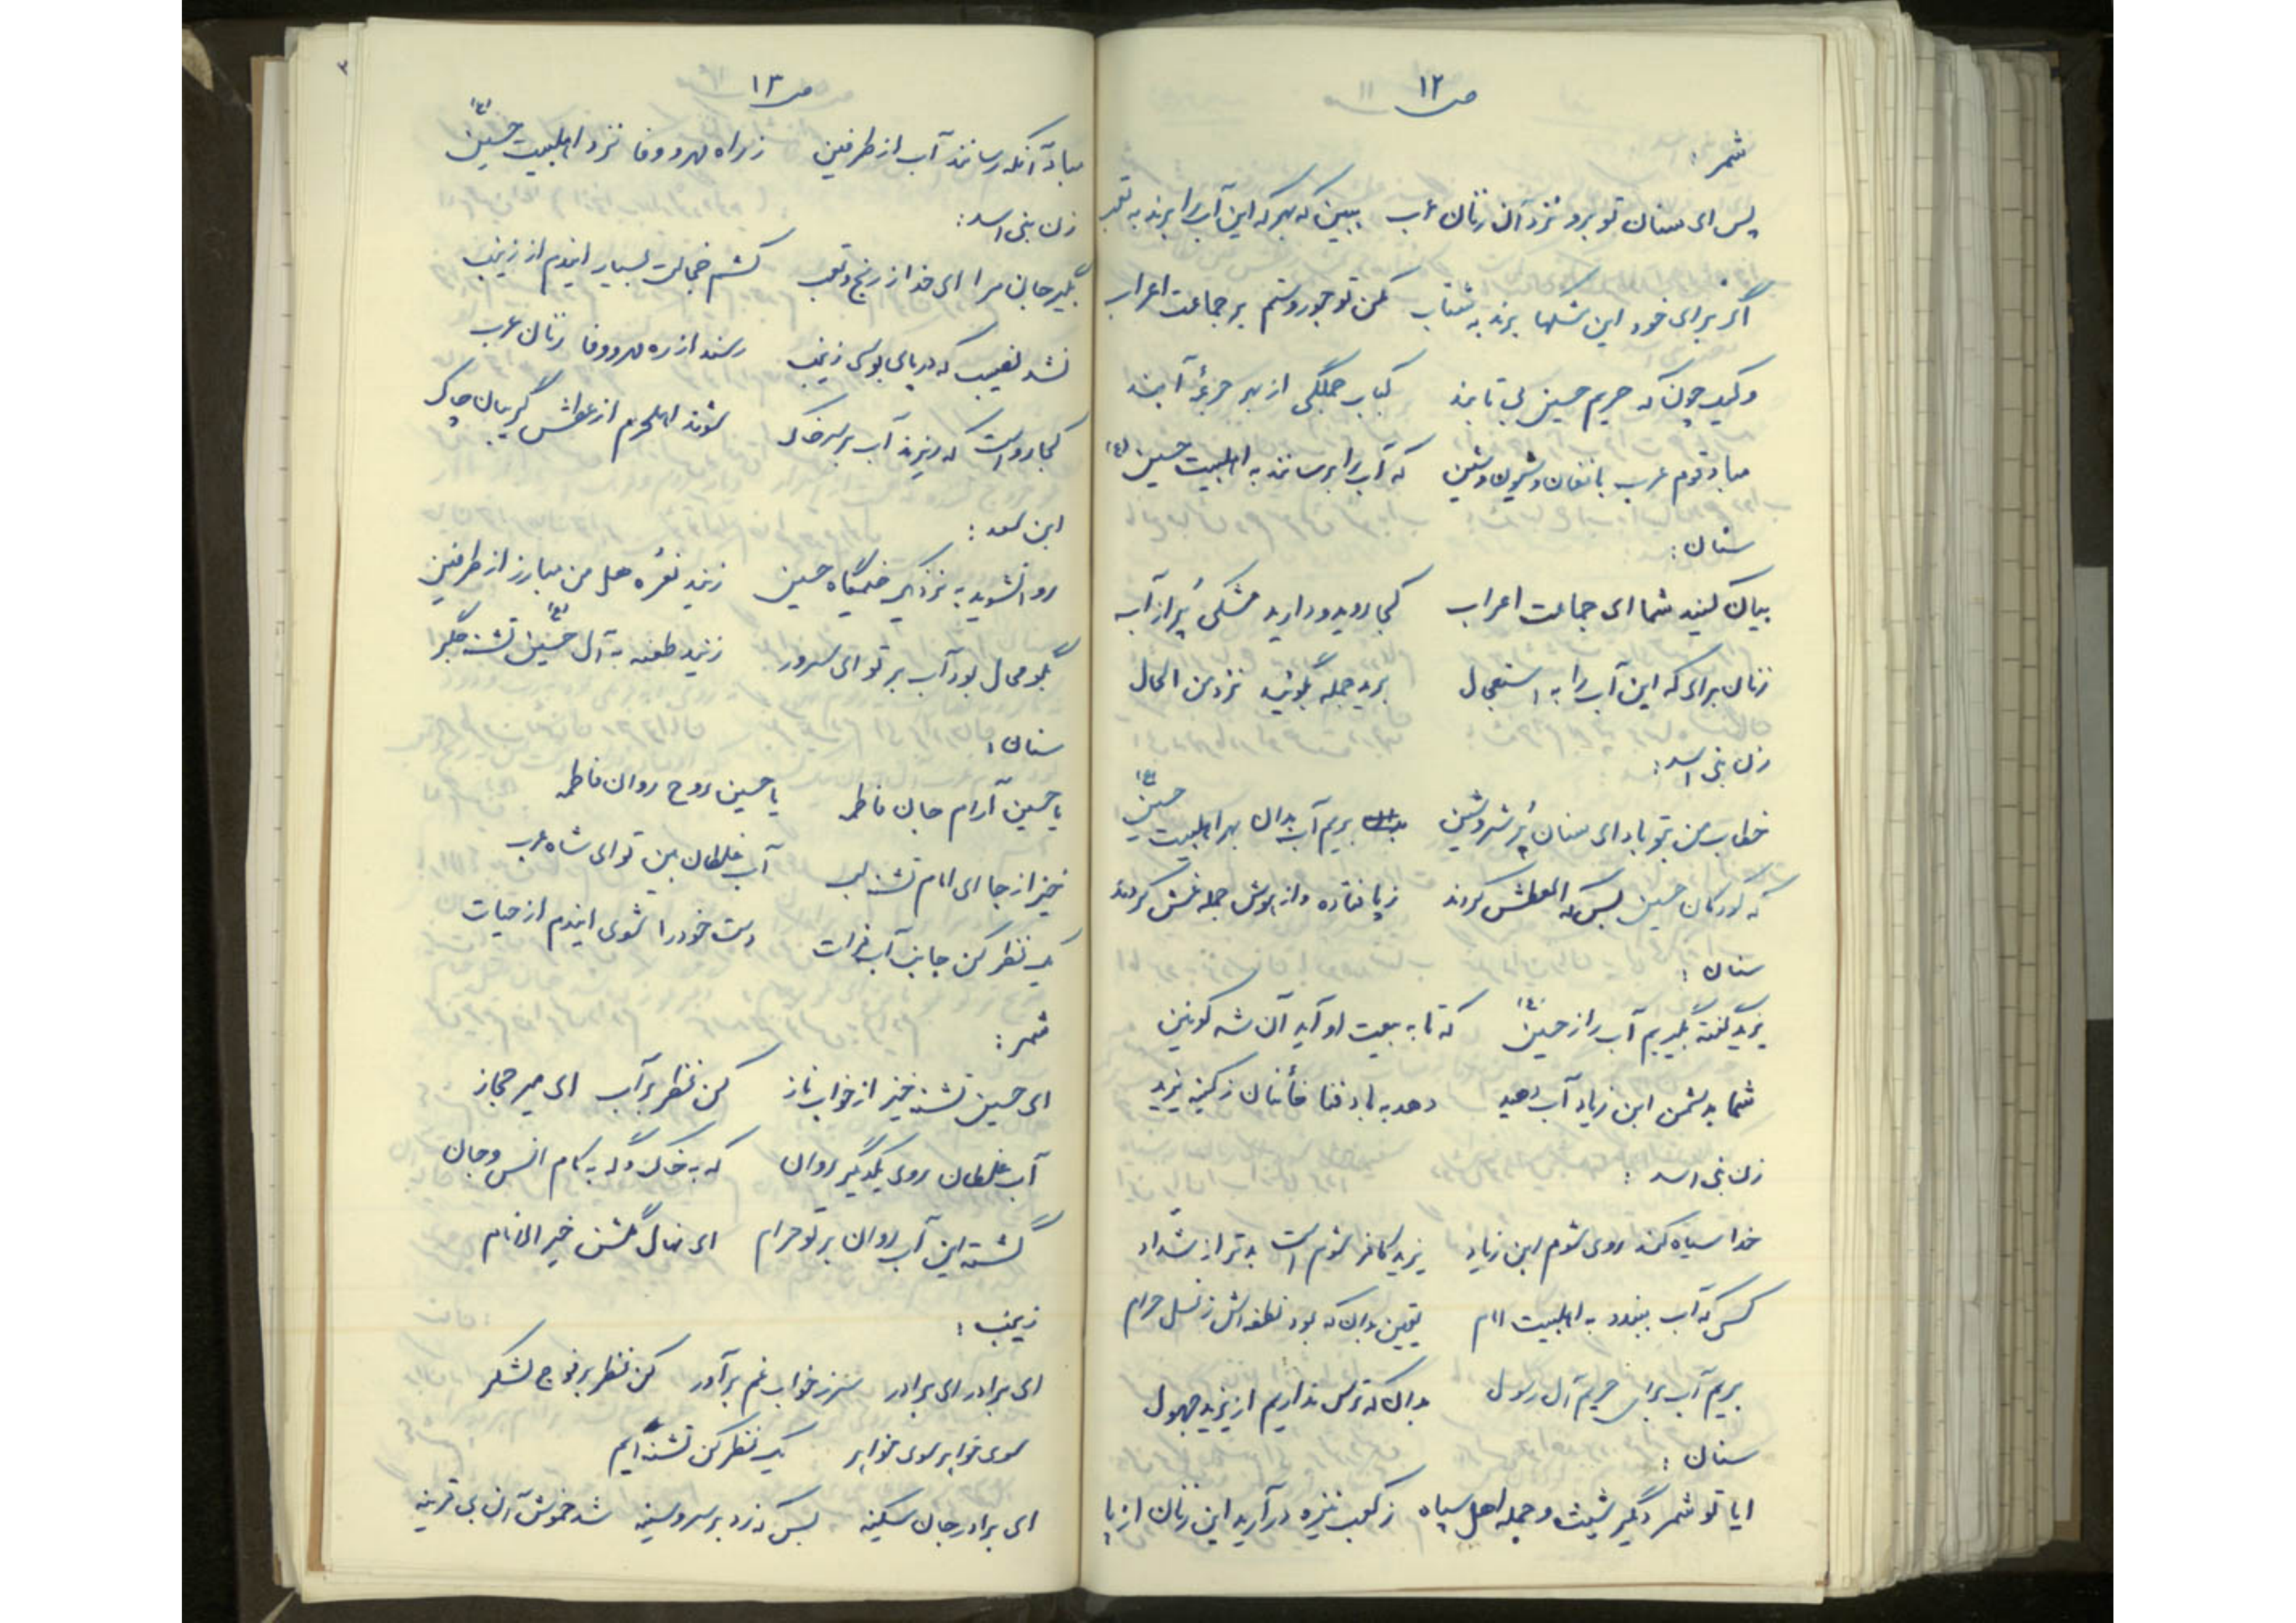 ص ۱۲
شمر :
پس ای سنان تو برو نزد آن زنان عرب ببین که بهر که این آب را برند به تعب
اگر برای خود این مشکها برند به شتاب مکن تو جور و ستم بر جماعت اعراب
ولیک چون که حریم حسین بی تابند کباب جملگی از بهر جرعهٔ آبند
مباد قوم عرب با فغان و شیون و شین که آب را برسانند به اهلبیت حسین (ع)
سنان :
بیان کنید شما ای جماعت اعراب کجا روید و دارید مشکی پُر از آب
زنان برای که این آب را به استعجال برید جمله بگوئید نزد من الحال
زن بنی اسد :
خطاب من بتو باد ای سنان پُر شر و شین بریم آب بدان بهر اهلبیت حسین (ع)
که کودکان حسین بسکه العطش کردند ز پا فتاده و از هوش جمله غش کردند
سنان :
یزید گفته بگیریم آب را از حسین (ع) که تا به بیعت او آید آن شه کونین
شما بدشمن ابن زیاد آب دهید دهد به باد فنا خانتان ز کینه یزید
زن بنی اسد :
خدا سیاه کند روی شوم ابن زیاد یزید کافر شوم است بدتر از شداد
کسی که آب ببندد به اهلبیت امام یقین بدان که بود نطفه اش ز نسل حرام
بریم آب برای حریم آل رسول بدان که ترس نداریم از یزید جهول
سنان :
ایا تو شمر دگر شیث و جمله اهل سپاه ز کعب نیزه درآرید این زنان از پا
ص ۱۳
مباد آنکه رسانند آب از طرفین ز راه مهر و وفا نزد اهلبیت حسین (ع)
زن بنی اسد :
بگیر جان مرا ای خدا ز رنج و تعب کشم خجالت بسیار ایندم از زینب
نشد نصیب که در پای بوسی زینب رسند از ره مهر و وفا زنان عرب
کجا رواست که ریزند آب بر سر خاک شوند اهلحرم از عطش گریبان چاک
ابن سعد :
روانشوید به نزدیک خیمگاه حسین زنید نعره هل من مبارز از طرفین
بگو محال بود آب بر تو ای سرور زنید طعنه به آل حسین (ع) تشنه جگر
سنان :
یا حسین آرام جان فاطمه یا حسین روح روان فاطمه
خیز از جا ای امام تشنه لب آب غلطان بین تو ای شاه عرب
یک نظر کن جانب آب فرات دست خود را شوی ایندم از حیات
شمر :
ای حسین تشنه خیز از خواب ناز کن نظر بر آب ای میر حجاز
آب غلطان روی یکدیگر روان که به خاک و گه به کام انس و جان
گشته این آب روان بر تو حرام ای نهال گلشن خیر الانام
زینب :
ای برادر ای برادر سر ز خواب غم برآور کن نظر بر فوج لشکر
سوی خواهر سوی خواهر یک نظر کن تشنه ایم
ای برادر جان سکینه بس که زد بر سر و سینه شد خموش آن بی قرینه